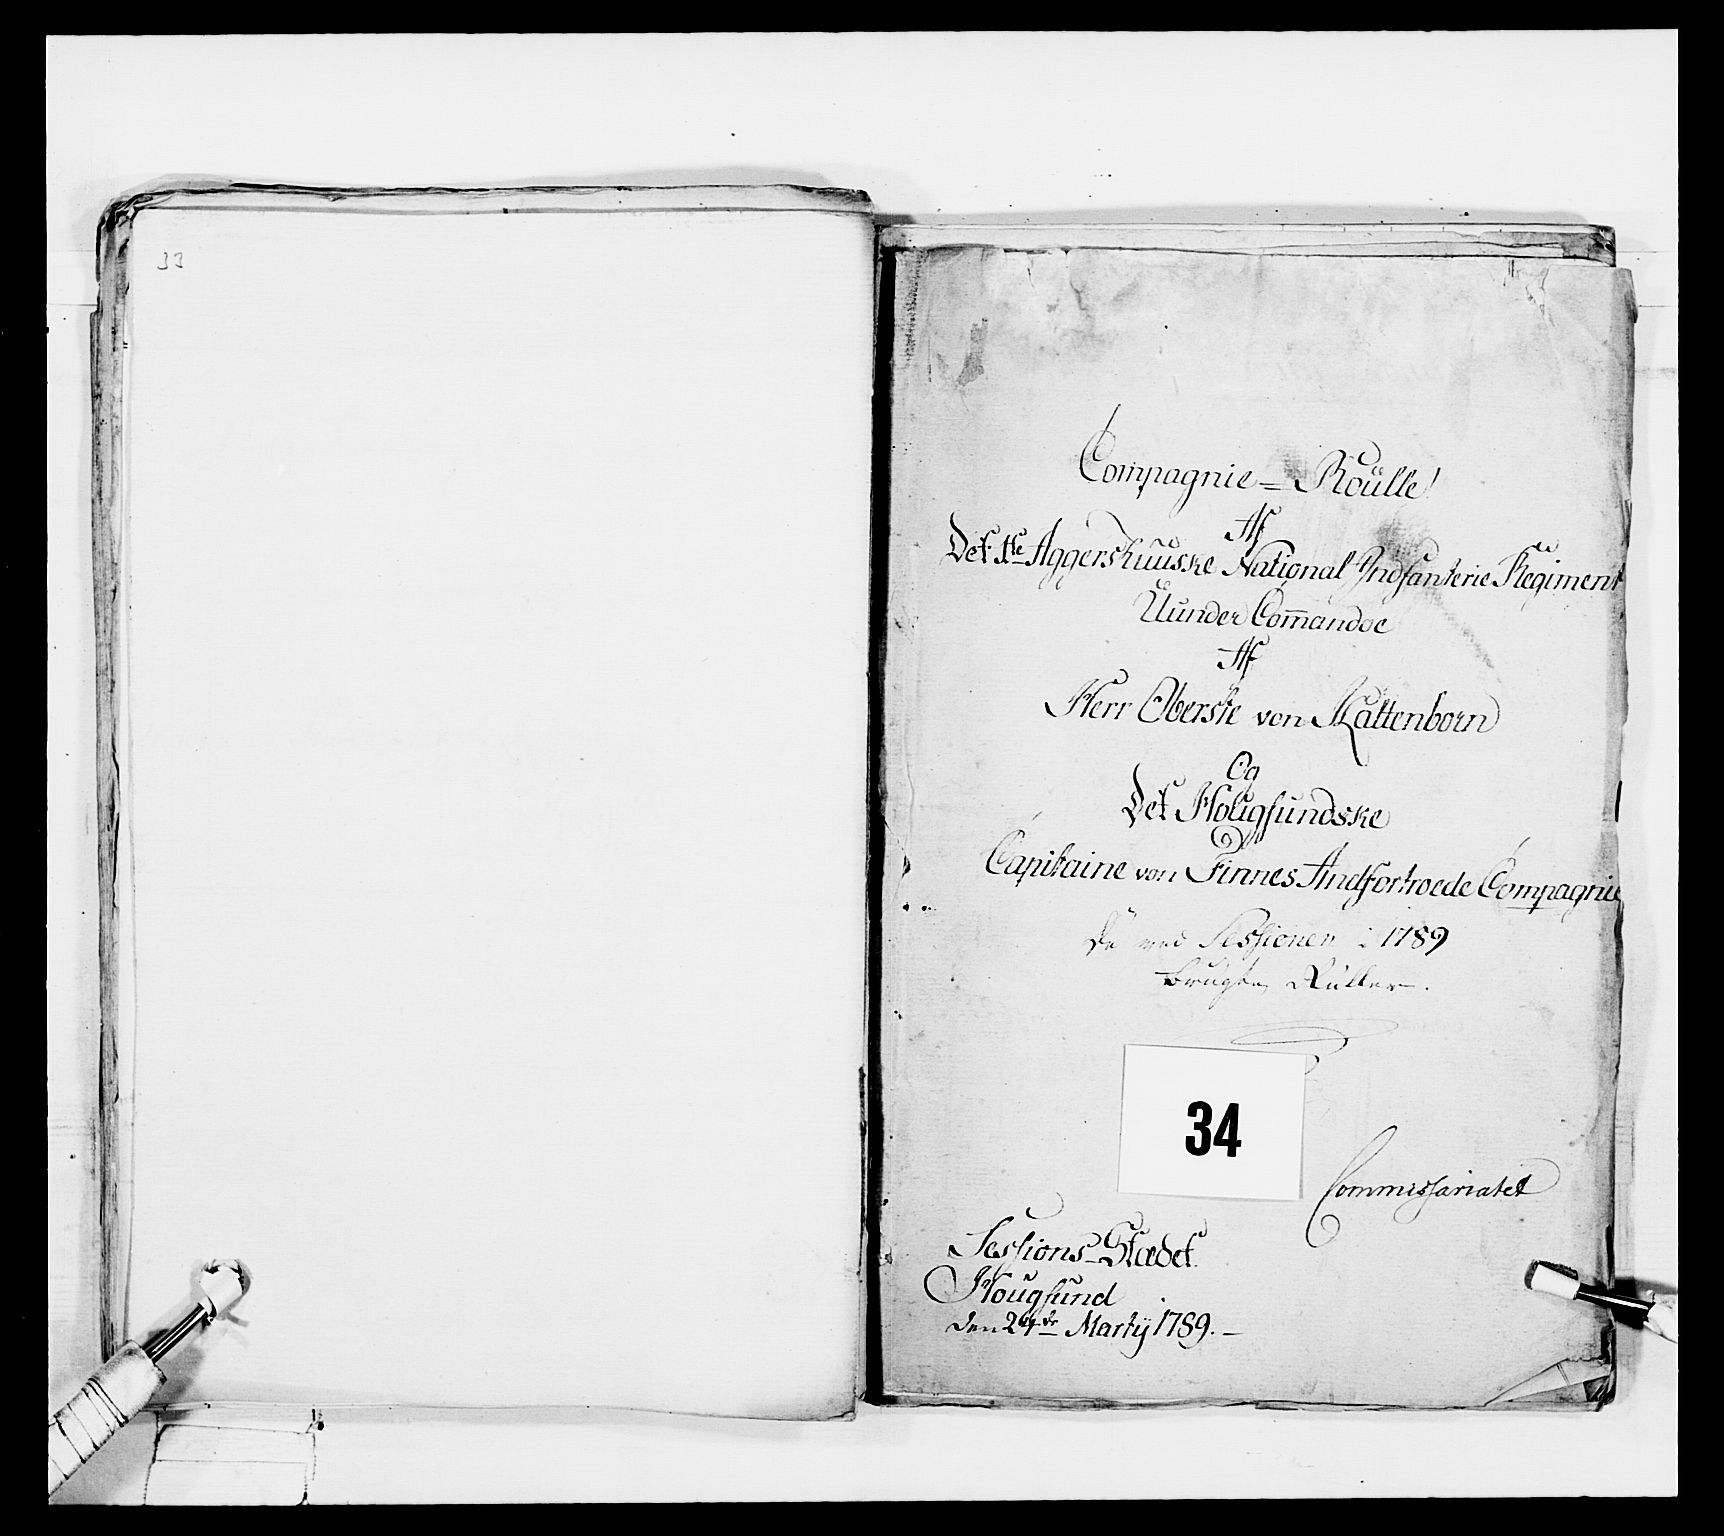 33
Compagnie - Roülle
Af
Det 1te Aggershuuske National Indfanterie Regiment
Uunder Com̄andoe
Af
Herr Oberste von Kaltenborn
Og
Det Hougsundske
Capitaine von Finnes Andfortroede Compagnie
De ved Sessionen i 1789
brugte Ruller.
34
Commissariatet
Sessions-Stædet
Hougsund
den 24de Martÿ 1789. -